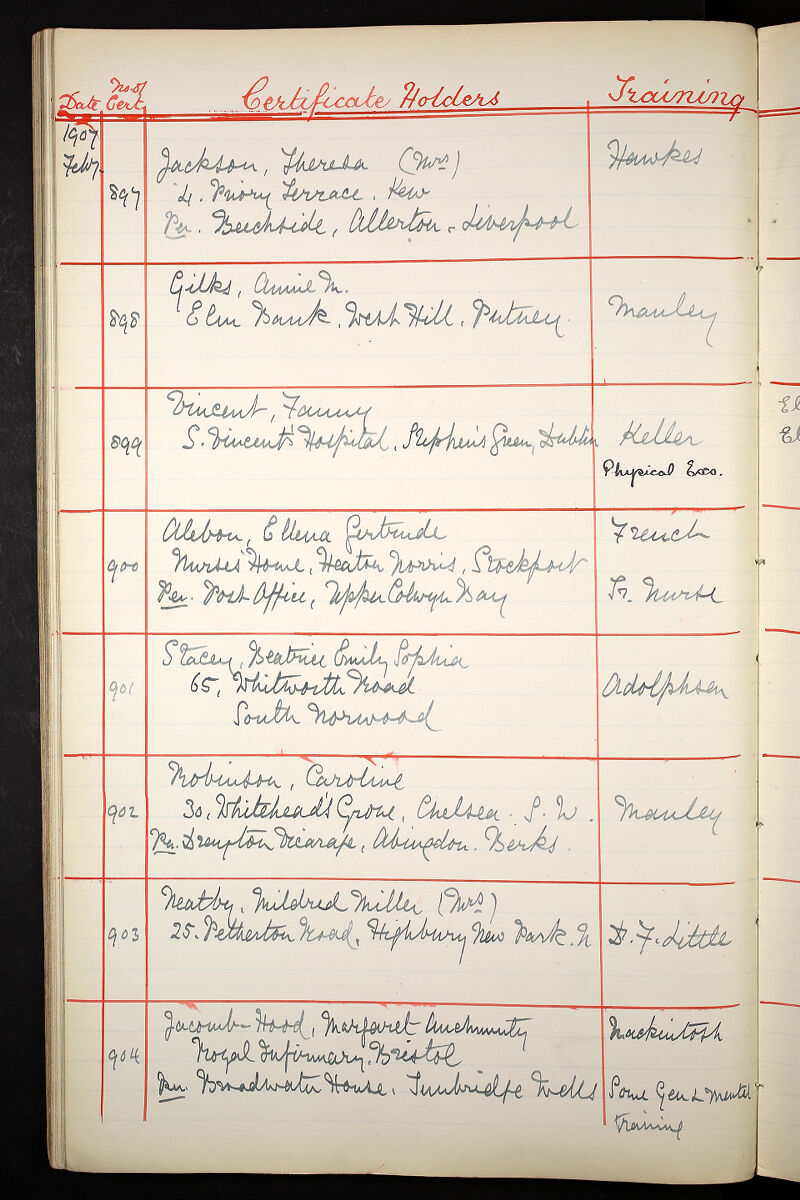 Date No. of Cert. Certificate Holders Training
1907
Feby.
Jackson, Theresa (Mrs) Hawkes
897 4. Priory Terrace. Kew
Per. Beechside, Allerton. Liverpool
Gilks, Annie M.
898 Elm Bank. West Hill. Putney. Manley
Vincent, Fanny
899 S. Vincent's Hospital. Stephen's Green, Dublin Keller
Physical Exs.
Alebon, Ellena Gertrude French
900 Nurses' Home. Heaton Norris. Stockport
Per. Post Office, Upper Colwyn Bay Tr. Nurse
Stacey, Beatrice Emily Sophia
901 65, Whitworth Road Adolphsen
South Norwood
Robinson, Caroline
902 30, Whitehead's Grove, Chelsea. S. W. Manley
Per. Vicarage, Abingdon. Berks.
Neatby. Mildred Miller (Mrs)
903 25. Petherton Road. Highbury New Park. N D. F. Little
Jacomb-Hood, Margaret Auchmuty Mackintosh
904 Royal Infirmary. Bristol
Per. Broadwater House. Tunbridge Wells Some Gen & Mental
training
El
El